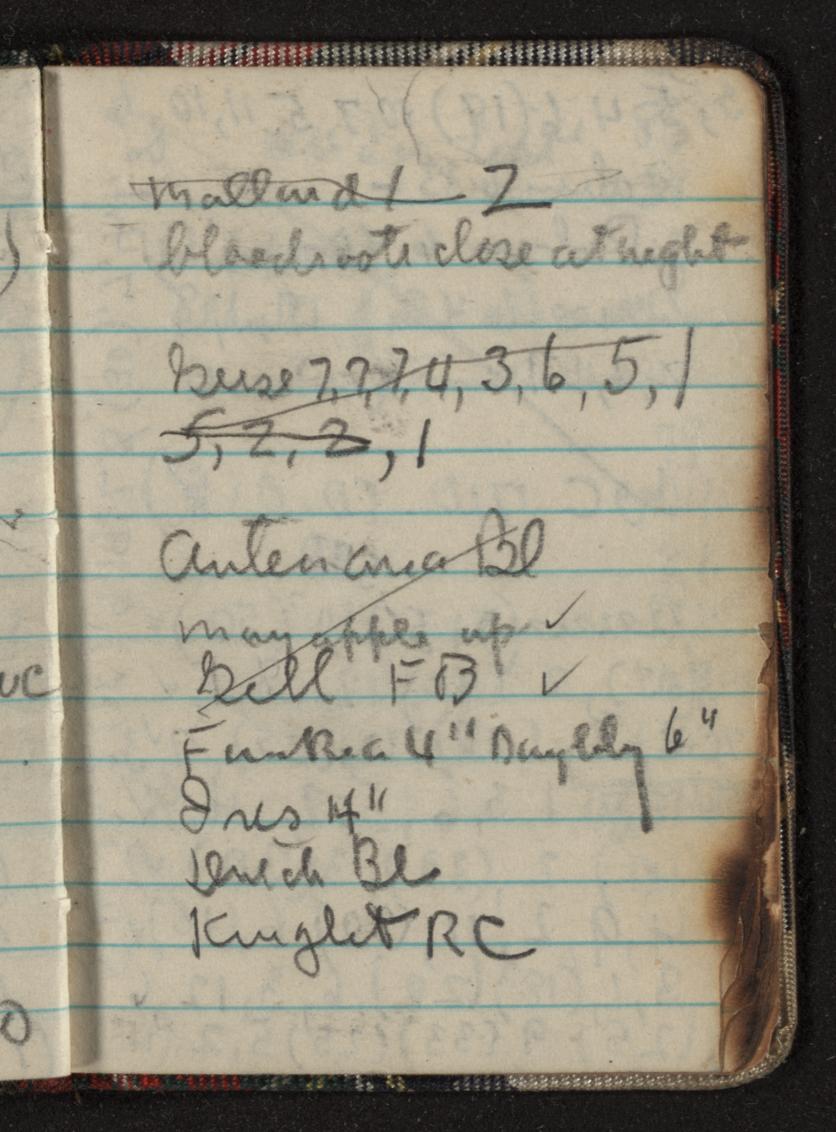 Mallard 1 2
bloodroots close at night
Geese 7, 7, 7, 4, 3, 6, 5, 1
5, 2, 2, 1
Antennaria Bl
may apple up ✓
Gill FB ✓
Funkia 4" Daylily 6"
Iris 14"
Dutch Bl
Kinglet RC